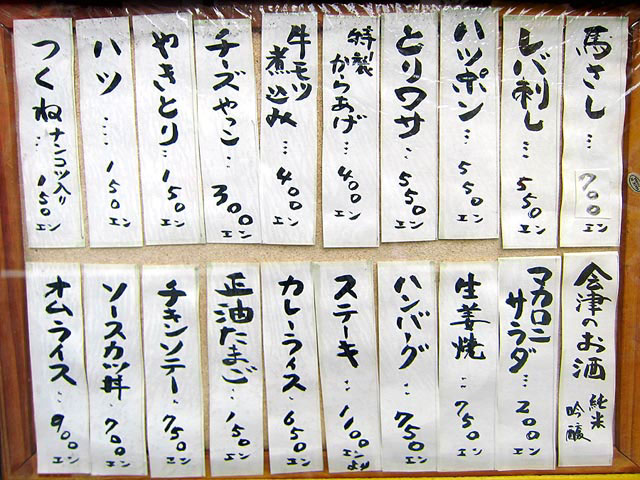 馬さし…700エン
レバ刺し…550エン
ハツポン…550エン
とりワサ…550エン
特製からあげ…400エン
牛モツ煮込み…400エン
チーズやっこ…300エン
やきとり…150エン
ハツ…150エン
つくねナンコツ入り…150エン
会津のお酒 純米吟醸
マカロニサラダ…200エン
生姜焼…750エン
ハンバーグ…750エン
ステーキ…1100エンより
カレーライス…650エン
正油たまご…150エン
チキンソテー…750エン
ソースカツ丼…700エン
オムライス…900エン